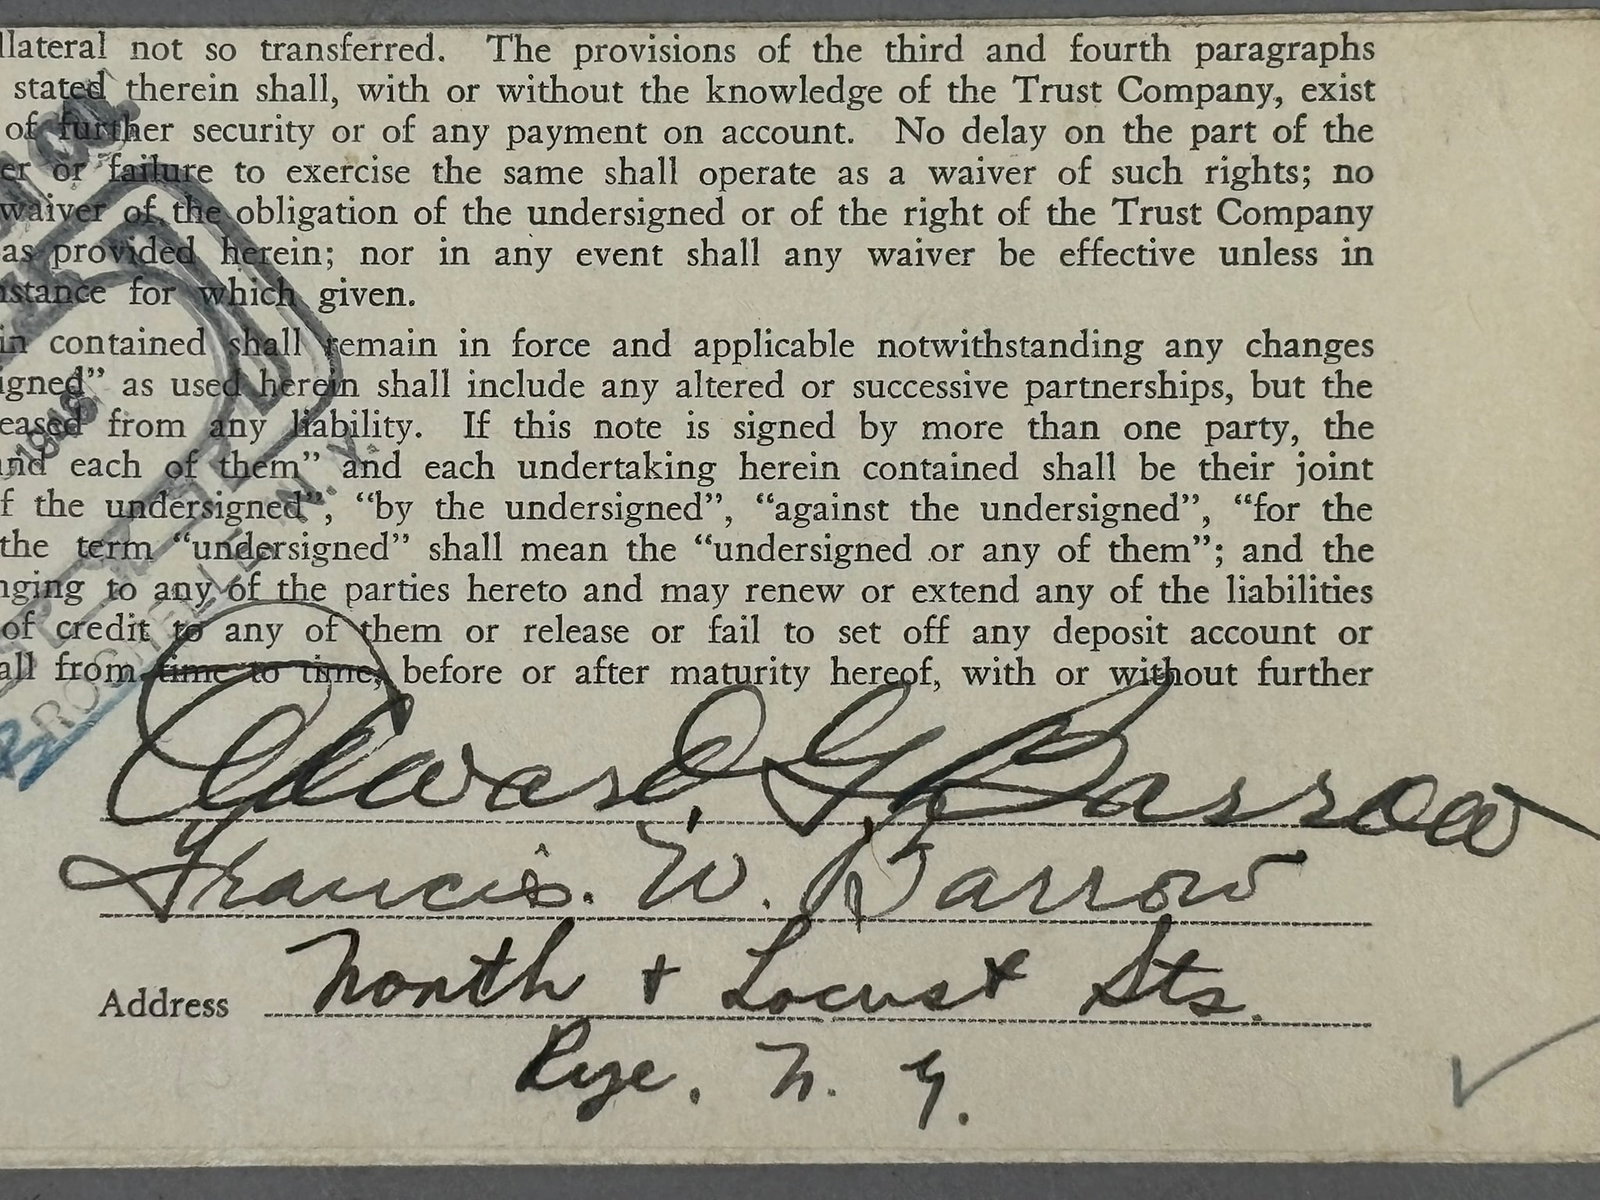 llateral not so transferred. The provisions of the third and fourth paragraphs
stated therein shall, with or without the knowledge of the Trust Company, exist
of further security or of any payment on account. No delay on the part of the
er or failure to exercise the same shall operate as a waiver of such rights; no
waiver of the obligation of the undersigned or of the right of the Trust Company
as provided herein; nor in any event shall any waiver be effective unless in
nstance for which given.
in contained shall remain in force and applicable notwithstanding any changes
igned” as used herein shall include any altered or successive partnerships, but the
eased from any liability. If this note is signed by more than one party, the
and each of them” and each undertaking herein contained shall be their joint
f the undersigned”, “by the undersigned”, “against the undersigned”, “for the
the term “undersigned” shall mean the “undersigned or any of them”; and the
nging to any of the parties hereto and may renew or extend any of the liabilities
of credit to any of them or release or fail to set off any deposit account or
all from time to time, before or after maturity hereof, with or without further
Edward G Barrow
Francis. W. Barrow
Address North + Locust Sts.
Rye, N. Y.